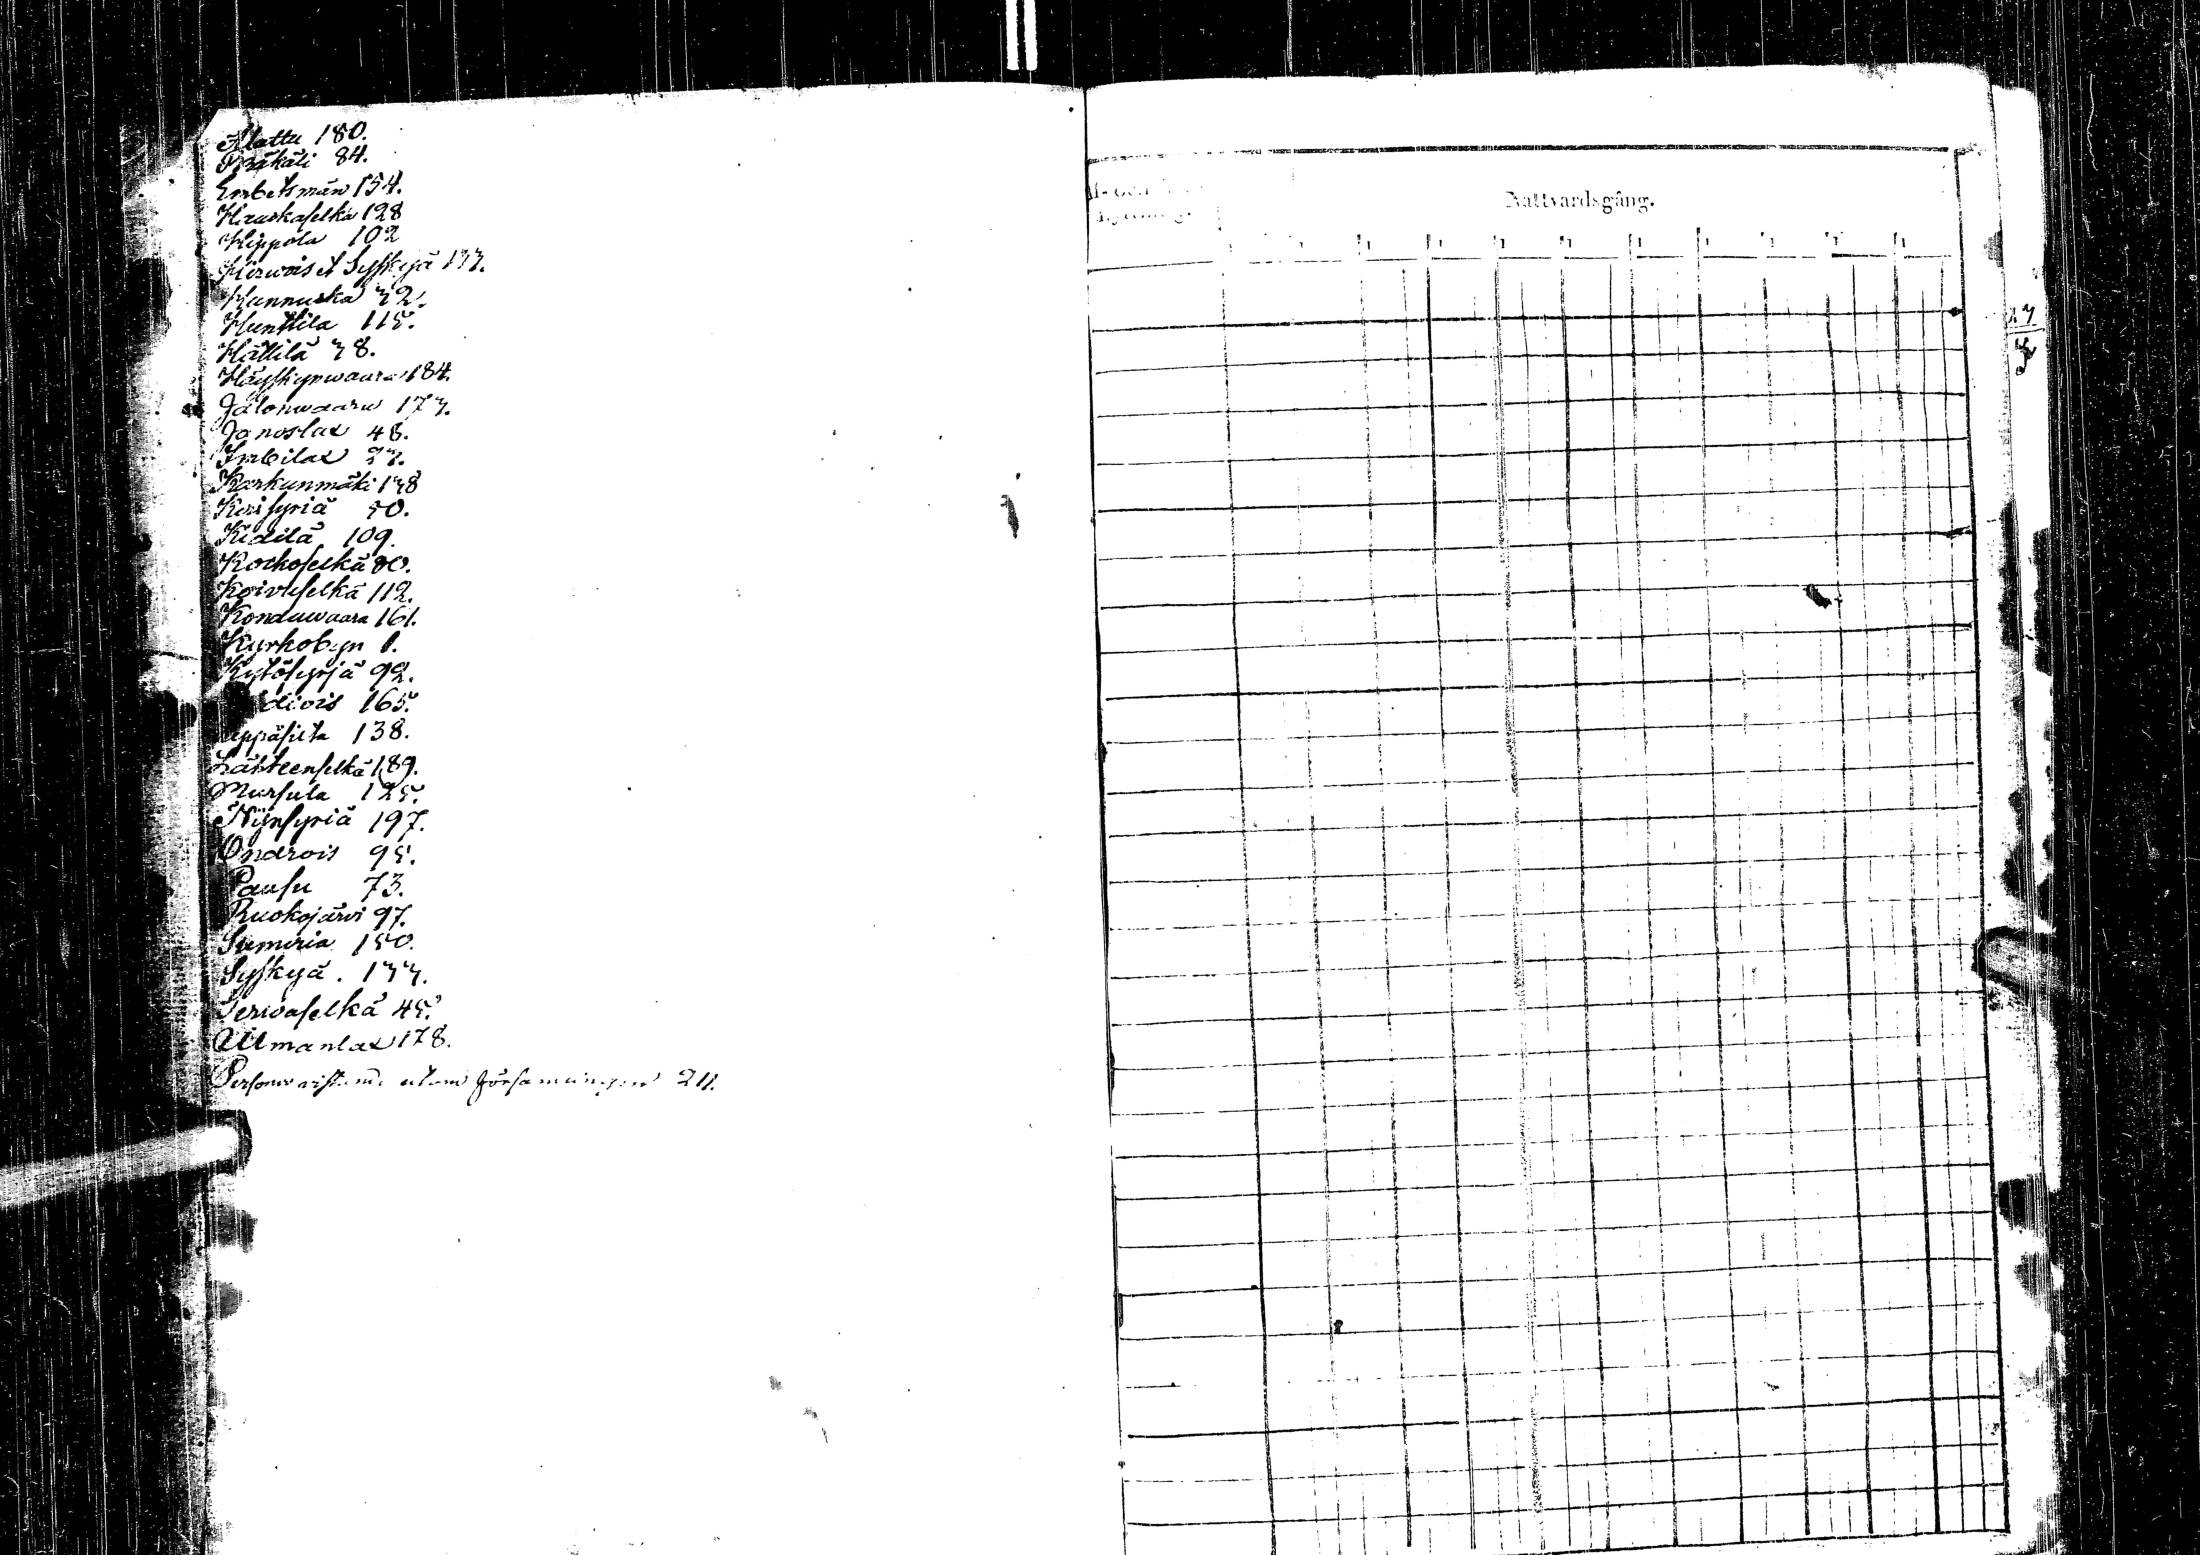 Alattu 180.
Bräkäti 84.
Embetsmän 154.
Hauskaselkä 128
Hippola 102
Hirvois et Syskyjä 133.
Hannuska 32.
Hunttila 115.
Hättilä 38.
Häyskynwaara 184.
Jalonwaara 173.
Janoslax 48.
Imbilax 27.
Karkunmäki 138
Kerisyriä 30.
Kidilä 109.
Kockoselkä 80.
Koivuselkä 112.
Konduwaara 161.
Kyrkobyn 1.
Kytösyrjä 92.
divis 165.
Leppäsilta 138.
Lähteenselkä 189.
Mursula 125.
Niinsyriä 197.
Ondrois 95.
Pausu 73.
Ruokojärvi 97.
Suemeria 150.
Syskyä. 133.
Terwaselkä 45.
Uilmanlax 178.
utom församlingen 211.
Nattvardsgång.